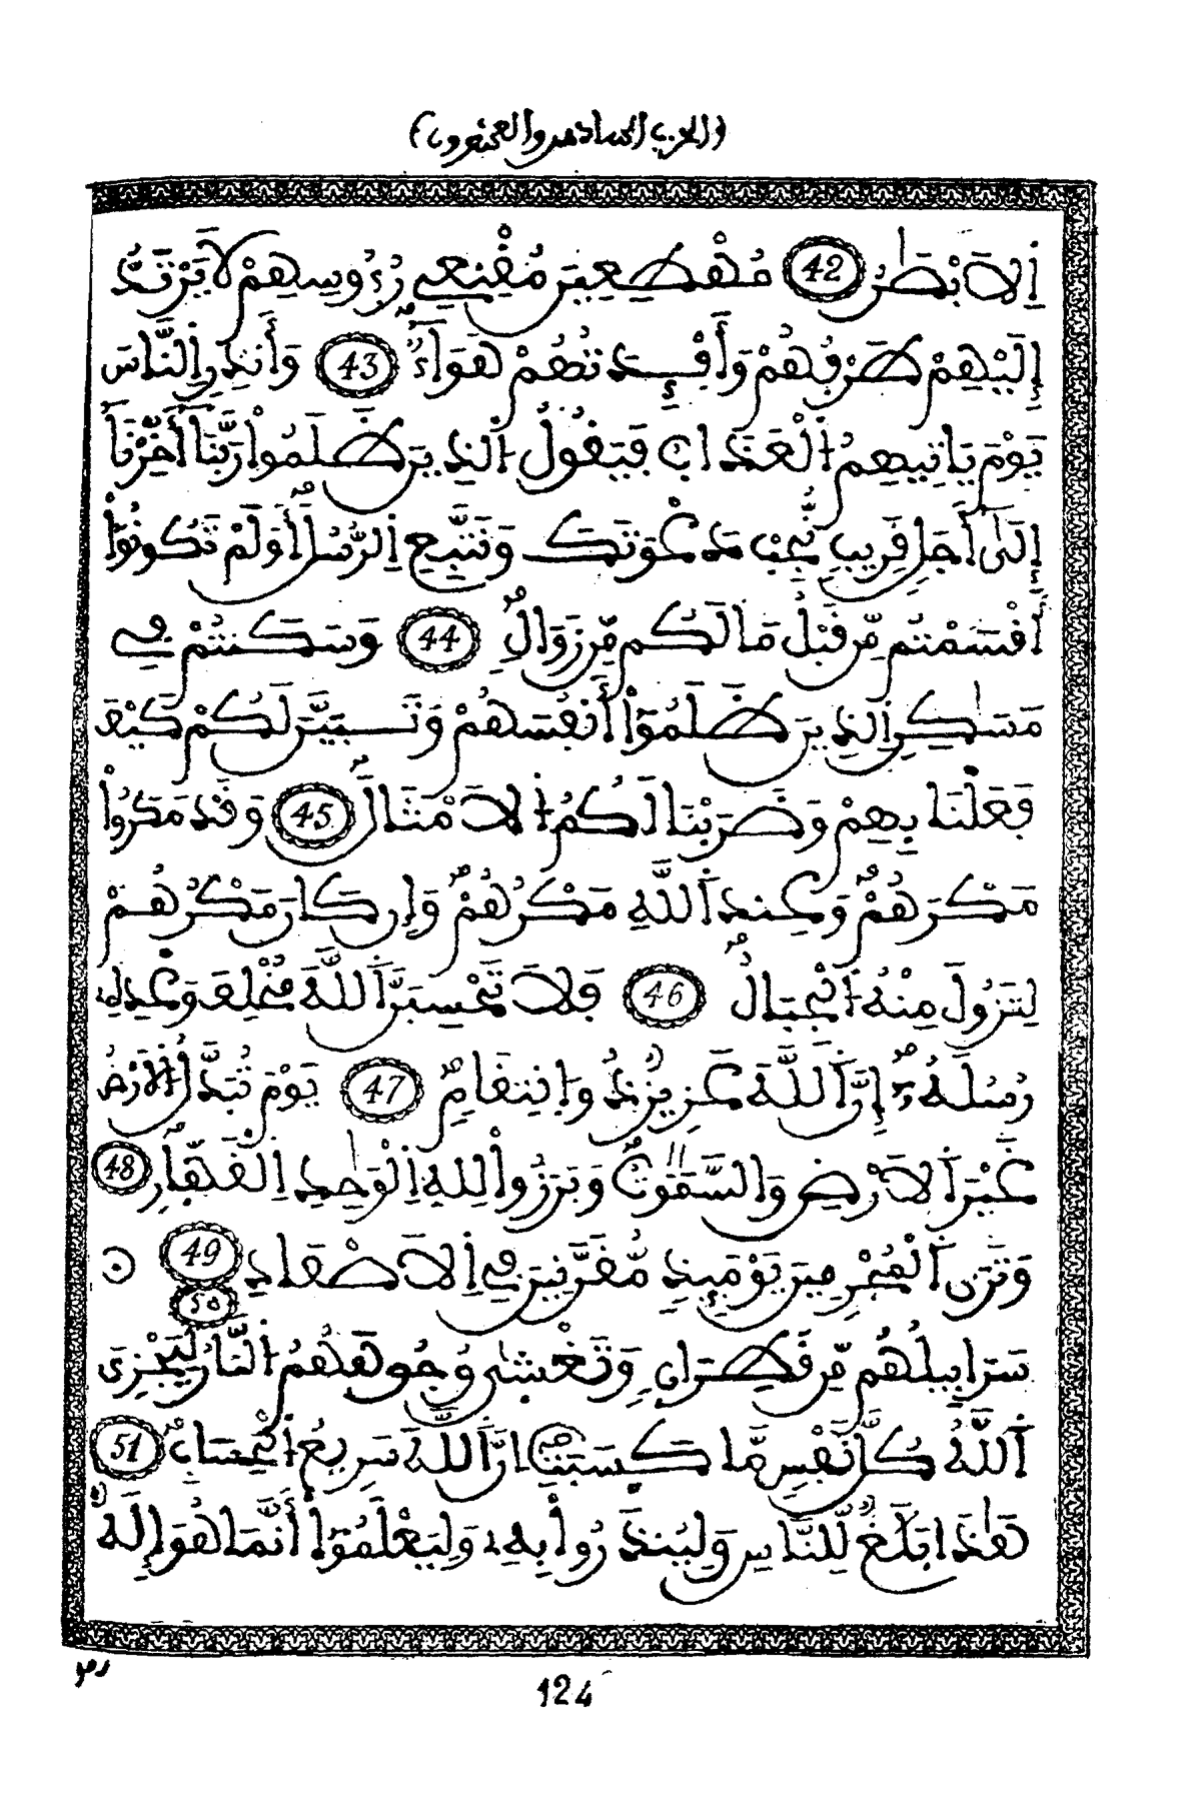 (الحزب السادس والعشرون)
اِ۬لَابْصَٰرُ 42 مُهْطِعِينَ مُقْنِعِے رُءُوسِهِمْ لَا يَرْتَدُّ
إِلَيْهِمْ طَرْفُهُمْ وَأَفْـِٕدَتُهُمْ هَوَآءٌ 43 وَأَنذِرِ اِ۬لنَّاسَ
يَوْمَ يَاتِيهِمُ اُ۬لْعَذَابُ فَيَقُولُ اُ۬لذِينَ ظَلَمُواْ رَبَّنَآ أَخِّرْنَآ
إِلَىٰٓ أَجَلٖ قَرِيبٖ نُّجِبْ دَعْوَتَكَ وَنَتَّبِعِ اِ۬لرُّسُلَۖ أَوَلَمْ تَكُونُوٓاْ
أَقْسَمْتُم مِّن قَبْلُ مَا لَكُم مِّن زَوَالٖ 44 وَسَكَنتُمْ فِے
مَسَٰكِنِ اِ۬لذِينَ ظَلَمُوٓاْ أَنفُسَهُمْ وَتَبَيَّنَ لَكُمْ كَيْفَ
فَعَلْنَا بِهِمْ وَضَرَبْنَا لَكُمُ اُ۬لَامْثَالَ 45 وَقَدْ مَكَرُواْ
مَكْرَهُمْ وَعِندَ اَ۬للَّهِ مَكْرُهُمْ وَإِن كَانَ مَكْرُهُمْ
لِتَزُولَ مِنْهُ اُ۬لْجِبَالُ 46 فَلَا تَحْسِبَنَّ اَ۬للَّهَ مُخْلِفَ وَعْدِهِۦ
رُسُلَهُۥٓ إِنَّ اَ۬للَّهَ عَزِيزٞ ذُو اُ۪نتِقَامٖ 47 يَوْمَ تُبَدَّلُ اُ۬لَارْضُ
غَيْرَ اَ۬لَارْضِ وَالسَّمَٰوَٰتُ وَبَرَزُواْ لِلهِ اِ۬لْوَٰحِدِ اِ۬لْقَهّ۪ارِ 48
وَتَرَى اَ۬لْمُجْرِمِينَ يَوْمَئِذٖ مُّقَرَّنِينَ فِے اِ۬لَاصْفَادِ 49
50
سَرَابِيلُهُم مِّن قَطِرَانٖ وَتَغْش۪ىٰ وُجُوهَهُمُ اُ۬لنَّارُ لِيَجْزِيَ
اَ۬للَّهُ كُلَّ نَفْسٖ مَّا كَسَبَتِۖ اِنَّ اَ۬للَّهَ سَرِيعُ اُ۬لْحِسَابِ 51
هَٰذَا بَلَٰغٞ لِّلنَّاسِ وَلِيُنذَرُواْ بِهِۦ وَلِيَعْلَمُوٓاْ أَنَّمَا هُوَ إِلَٰهٞ
124